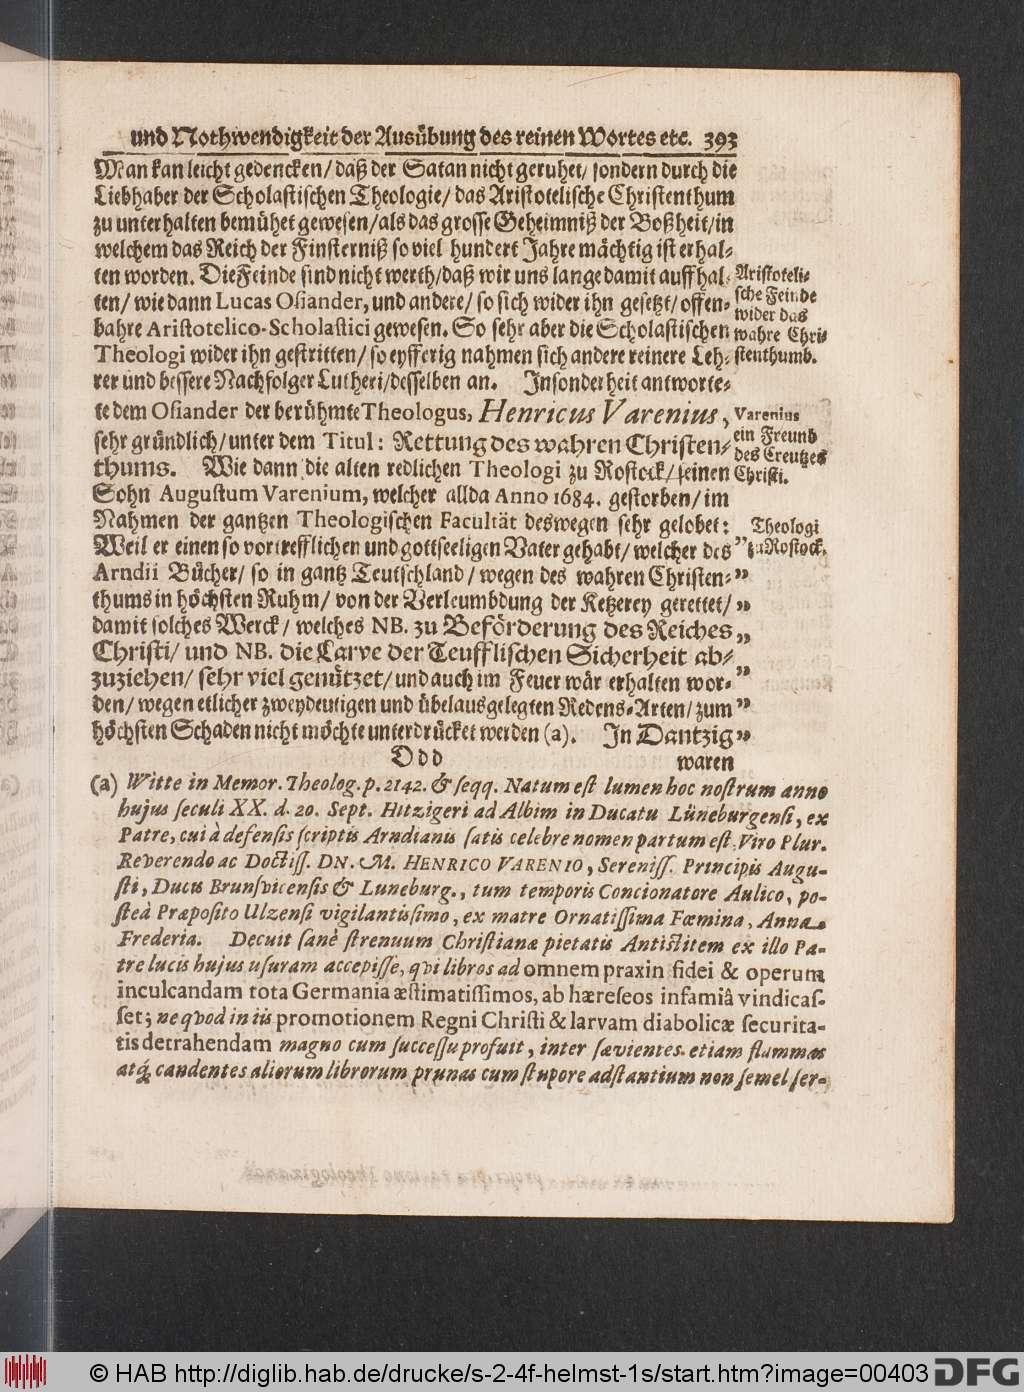 und Nothwendigkeit der Ausübung des reinen Wortes etc. 393
Man kan leicht gedencken/ daß der Satan nicht geruhet/ sondern durch die
Liebhaber der Scholastischen Theologie/ das Aristotelische Christenthum
zu unterhalten bemühet gewesen/ als das grosse Geheimniß der Boßheit/ in
welchem das Reich der Finsterniß so viel hundert Jahre mächtig ist erhal-
ten worden. Die Feinde sind nicht werth/ daß wir uns lange damit auffhal-
ten/ wie dann Lucas Osiander, und andere/ so sich wider ihn gesetzt/ offen-
bahre Aristotelico-Scholastici gewesen. So sehr aber die Scholastischen
Theologi wider ihn gestritten/ so eyfferig nahmen sich andere reinere Leh-
rer und bessere Nachfolger Lutheri/ desselben an. Insonderheit antworte-
te dem Osiander der berühmte Theologus, Henricus Varenius,
sehr gründlich/ unter dem Titul: Rettung des wahren Christen-
thums. Wie dann die alten redlichen Theologi zu Rostock/ seinen
Sohn Augustum Varenium, welcher allda Anno 1684. gestorben/ im
Nahmen der gantzen Theologischen Facultät deswegen sehr gelobet:
Weil er einen so vortrefflichen und gottseeligen Vater gehabt/ welcher des „
Arndii Bücher/ so in gantz Teutschland/ wegen des wahren Christen- „
thums in höchsten Ruhm/ von der Verleumbdung der Ketzerey gerettet/ „
damit solches Werck/ welches NB. zu Beförderung des Reiches „
Christi/ und NB. die Larve der Teufflischen Sicherheit ab-
zuziehen/ sehr viel genützet/ und auch im Feuer wär erhalten wor- „
den/ wegen etlicher zweydeutigen und übelausgelegten Redens-Arten/ zum „
höchsten Schaden nicht möchte unterdrücket werden (a). In Dantzig „
Ddd waren
Aristoteli-
sche Feinde
wider das
wahre Chri-
stenthumb.
Varenius
ein Freund
des Creutzes
Christi.
Theologi
zu Rostock.
(a) Witte in Memor. Theolog. p. 2142. & seqq. Natum est lumen hoc nostrum anno
hujus seculi XX. d. 20. Sept. Hitzigeri ad Albim in Ducatu Lüneburgensi, ex
Patre, cui à defensis scriptis Arndianis satis celebre nomen partum est, Viro Plur.
Reverendo ac Doctiss. DN. M. HENRICO VARENIO, Sereniss. Principis Augu-
sti, Ducis Brunsvicensis & Luneburg., tum temporis Concionatore Aulico, po-
steà Præposito Ulzensi vigilantissimo, ex matre Ornatissima Fœmina, Anna
Frederia. Decuit sanè strenuum Christianæ pietatis Antistitem ex illo Pa-
tre lucis hujus usuram accepisse, qvi libros ad omnem praxin fidei & operum
inculcandam tota Germania æstimatissimos, ab hæreseos infamiâ vindicas-
set; ne qvod in iis promotionem Regni Christi & larvam diabolicæ securita-
tis detrahendam magno cum successu profuit, inter sævientes etiam flammas
atq; candentes aliorum librorum prunas cum stupore adstantium non semel ser-
© HAB http://diglib.hab.de/drucke/s-2-4f-helmst-1s/start.htm?image=00403 DFG